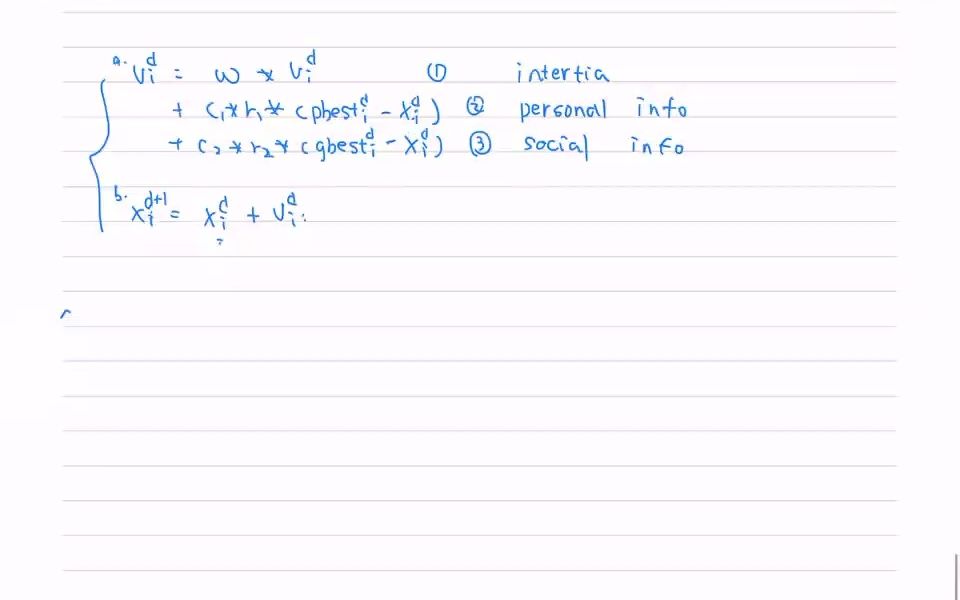 a. v_i^d = w * v_i^d ① intertia
+ c_1 * r_1 * (pbest_i^d - x_i^d) ② personal info
+ c_2 * r_2 * (gbest_i^d - x_i^d) ③ social info
b. x_i^{d+1} = x_i^d + v_i^d